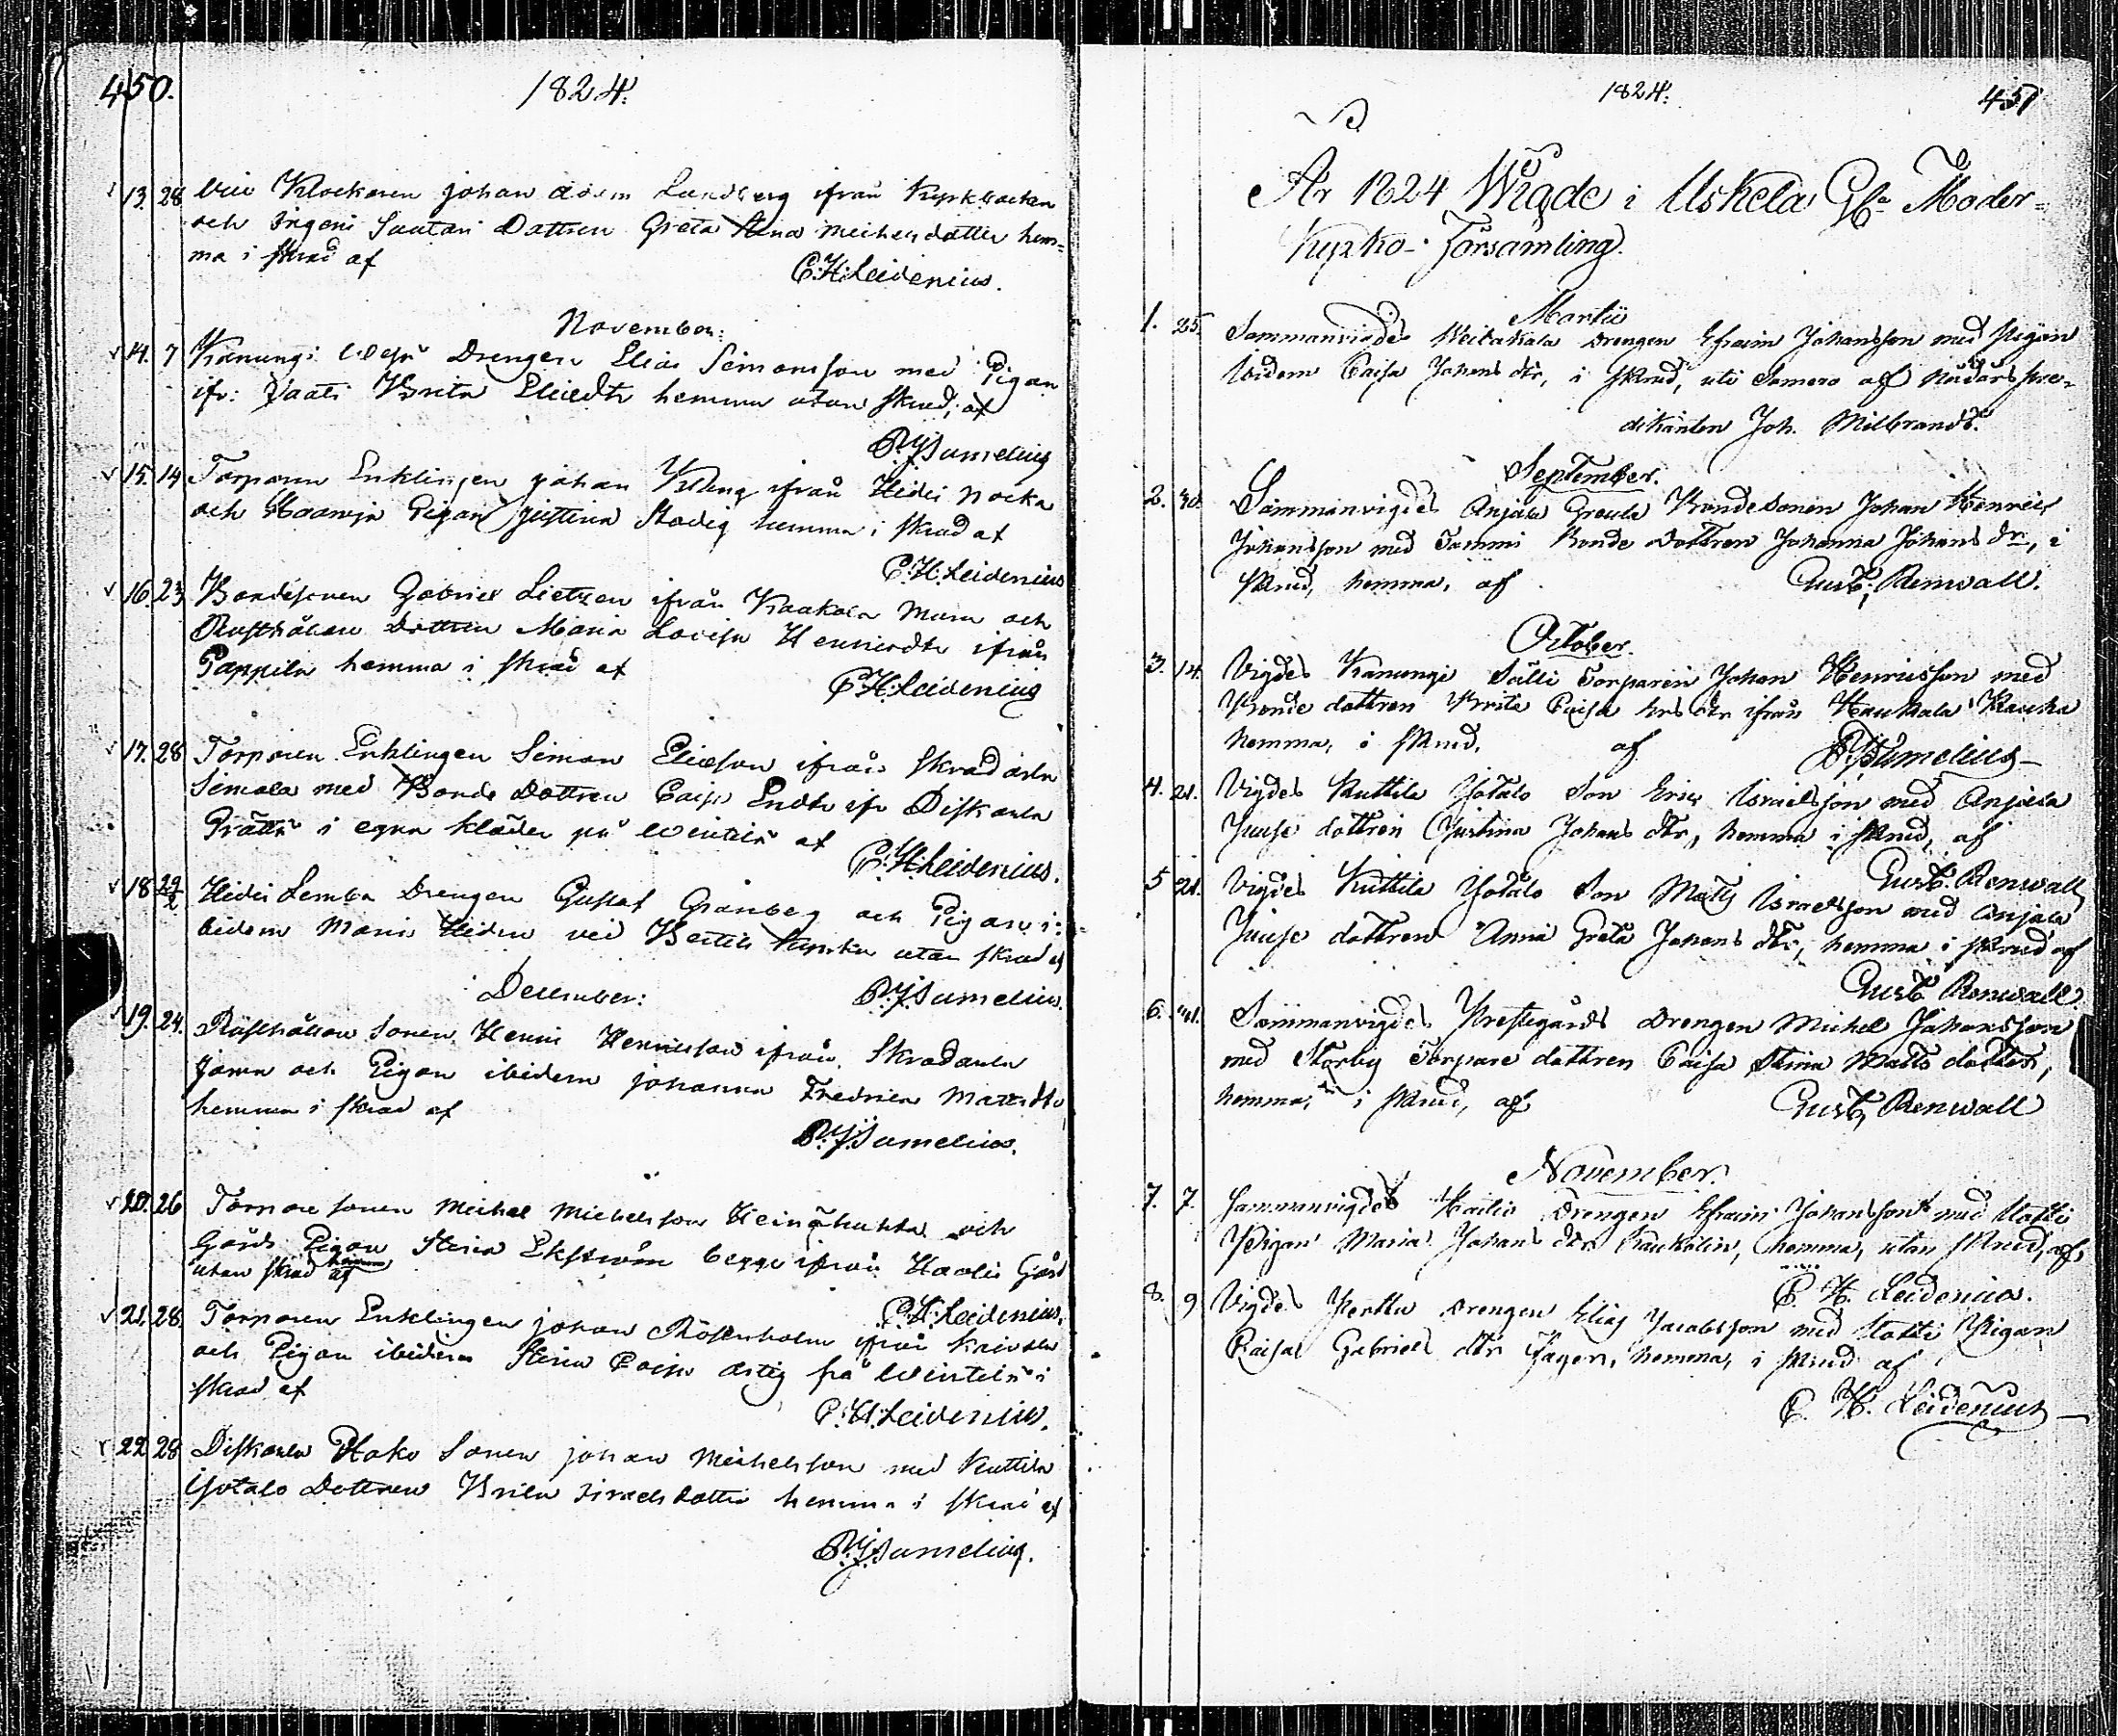 450.
1824.
13. 28 Vice Klockaren Johan Adam Lundberg ifrån Kyrkbacken
och Ingeni Sautari Dottren Greta Stina Michelsdotter hem-
ma i skrud af
C:H:Leidenius.
November:
14. 7 Kanungi Drengen Elias Simonsson med Pigan
ifr: Vaati Brita Eliædtr hemma utan skrud, af
P:J:Sumelius
15. 14 Torparen Enklingen Johan ifrån Hidis Nocka
och Haarja Pigan Justina Stadig hemma i skrud af
C:H:Leidenius
16. 23 Bondesonen Gabriel Lietzen ifrån Kaukola Muru och
Rusthållare Dottren Maria Lovisa Henricsdtr ifrån
Pappila hemma i skrud af
C:H:Leidenius
17. 28 Torparen Enklingen Simon Eliæson ifrån Skradarla
Simola med Bonde Dottren Caisa Ericsdtr ifr Diskarla
Prättä i egna kläder på Wintelä af
C:H:Leidenius.
18 29/2 Hidis Lemba Drengen Gustaf Granberg och Pigan i-
bidem Maria Hiden vid Bertils utan skrud af
P:J:Sumelius.
December:
19. 24. Rusthållare Sonen Henric Henricsson ifrån Skradarla
Jama och Pigan ibidem Johanna Fredrica Mattsdtr
hemma i skrud af
P:J:Sumelius.
20. 26 Torpare Sonen Michel Michelsson Heinähuhta och
Gårds Pigan Stina Ekström begge ifrån Haalis Gård
utan skrud hemma af
C:H:Leidenius.
21. 28. Torparen Enklingen Johan Rösenholm ifrån Kaivola
och Pigan ibidem Stina Caisa Ärtig på Wintelä i
skrud af
C:H:Leidenius.
22. 28 Diskarla Hako Sonen Johan Michelsson med Kuttila
Yotalo Dottren Brita Israelsdotter hemma i skrud af
P:J:Sumelius.
1824.
451
År 1824 Wigde i Uskela Moder-
Kyrko-Församling.
Martii
1. 25. Sammanvigdes Veitakala drengen Efraim Johansson med Pigan
ibidem Caisa Johans dtr, i skrud, uti Somero af Nådårs Pre-
dikanten Joh. Milbrandt.
September.
2. 30. Sammanvigdes Anjala Greula Bondesonen Johan Henric
Johansson med Tammi Bonde Dottren Johanna Johans dr, i
skrud, hemma, af Gust: Renwall.
October.
3. 14. Vigdes Kanungi Sälli Torparen Johan Henricsson med
Bonde dottren Brita Caisa Ers dtr ifrån Haukala Kauka
hemma, i skrud, af P:J:Sumelius
4. 21. Vigdes Kuttila Yotalo Son Eric Israelsson med Anjala
Juuse dottren Justina Johans dtr, hemma i skrud, af
Gust. Renwall
5 21. Vigdes Kuttila Yotalo Son Matts Israelsson med Anjala
Juuse dottren Anna Greta Johans dtr, hemma i skrud af
Gust Renwall
6. 31. Sammanvigdes Prestegårds Drengen Michel Johansson
med Storby Torpare dottren Caisa Stina Matts dotter,
hemma, i skrud, af Gust, Renwall
November.
7. 7. Sammanvigdes Haalis Drengen Efraim Johansson med Uotti
Pigan Maria Johans dtr Kaukolin, hemma, utan skrud, af,
C. H. Leidenius.
8. 9 Vigdes Perttu drengen Elias Jacobsson med Uotti Pigan
Caisa Gabriels dtr Jägers, hemma, i skrud af
C. H. Leidenius